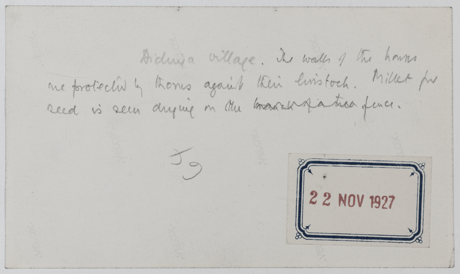 Didinga village. The walls of the houses
are protected by thorns against their livestock. Millet for
seed is seen drying on the fence.
J9
22 NOV 1927